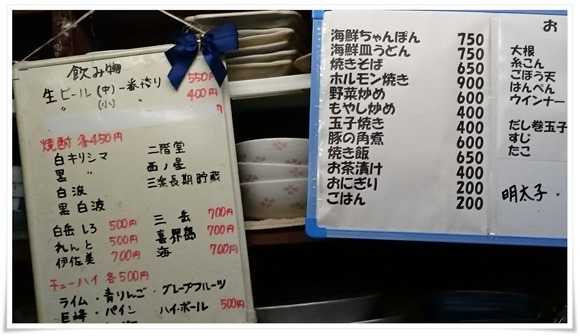 飲み物
生ビール(中)一番搾り 550円
〃 (小) 〃 400円
焼酎 各450円
白キリシマ
黒 〃
白波
黒白波
二階堂
西ノ星
三楽長期貯蔵
白岳しろ 500円
れんと 500円
伊佐美 700円
三岳 700円
喜界島 700円
海 700円
チューハイ 各500円
ライム・青りんご・グレープフルーツ
巨峰・パイン ハイ・ボール 500円
海鮮ちゃんぽん 750
海鮮皿うどん 750
焼きそば 650
ホルモン焼き 900
野菜炒め 600
もやし炒め 400
玉子焼き 400
豚の角煮 600
焼き飯 650
お茶漬け 400
おにぎり 200
ごはん 200
お
大根
糸こん
ごぼう天
はんぺん
ウインナー
だし巻玉子
すじ
たこ
明太子